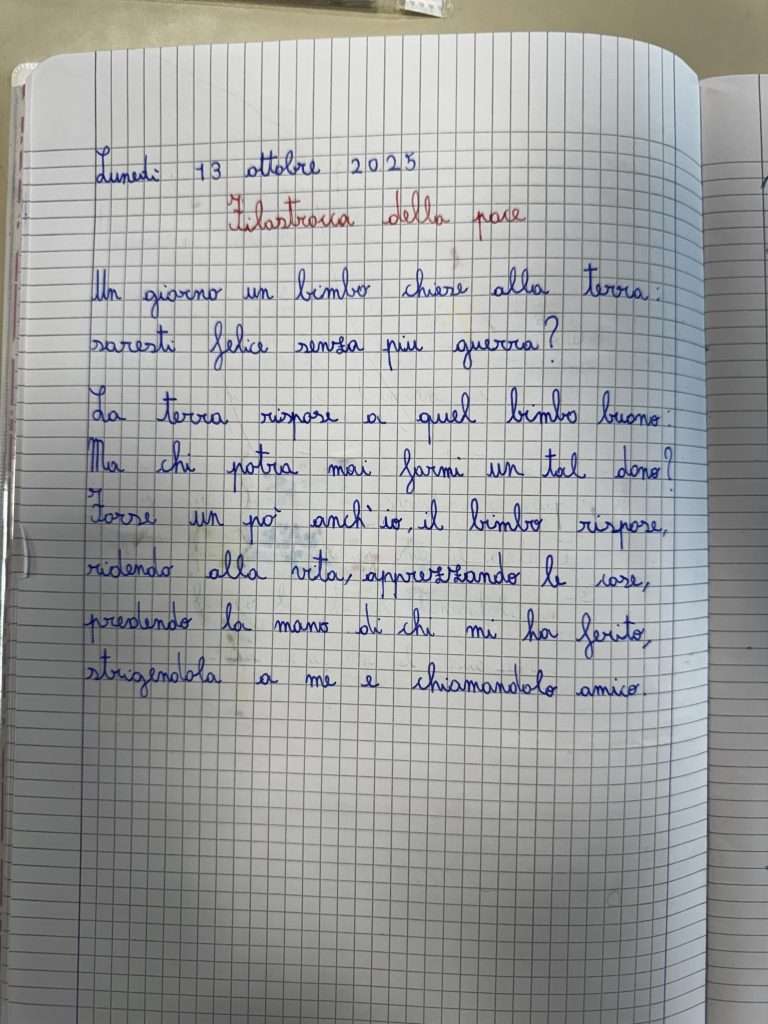 Lunedì 13 ottobre 2025
Filastrocca della pace
Un giorno un bimbo chiese alla terra:
saresti felice senza piu guerra?
La terra rispose a quel bimbo buono:
Ma chi potra mai farmi un tal dono?
Forse un pò anch'io, il bimbo rispose,
ridendo alla vita, apprezzando le cose,
predendo la mano di chi mi ha ferito,
strigendola a me e chiamandolo amico.